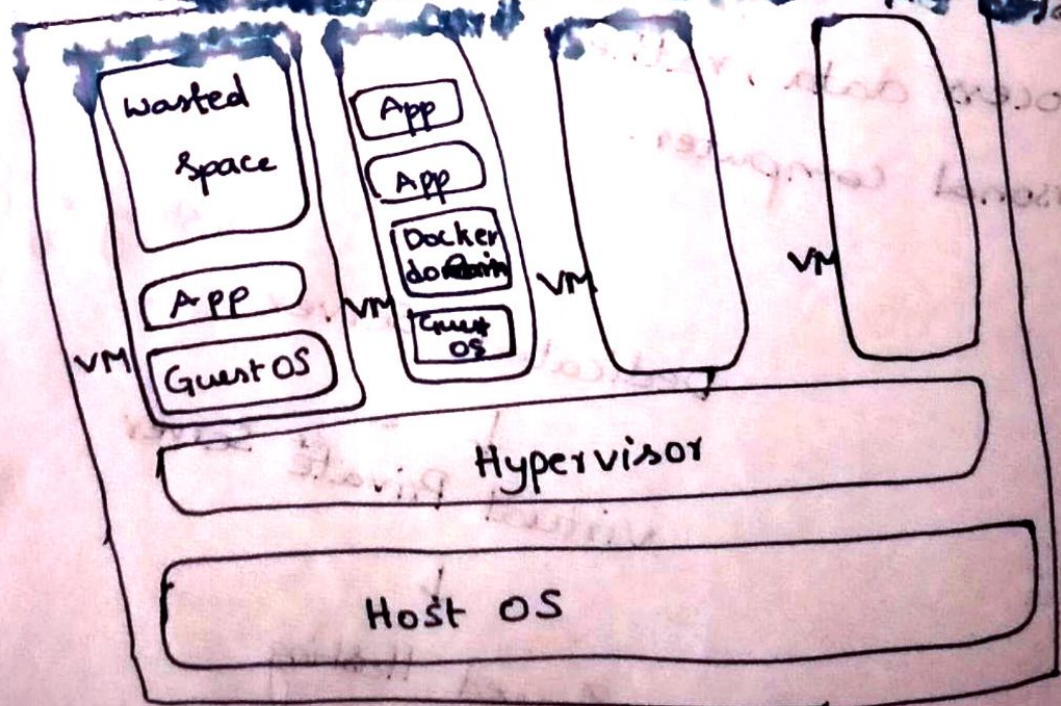 Wasted
Space
App
Guest OS
VM
App
App
Docker
Guest
OS
VM
VM
VM
Hypervisor
Host OS